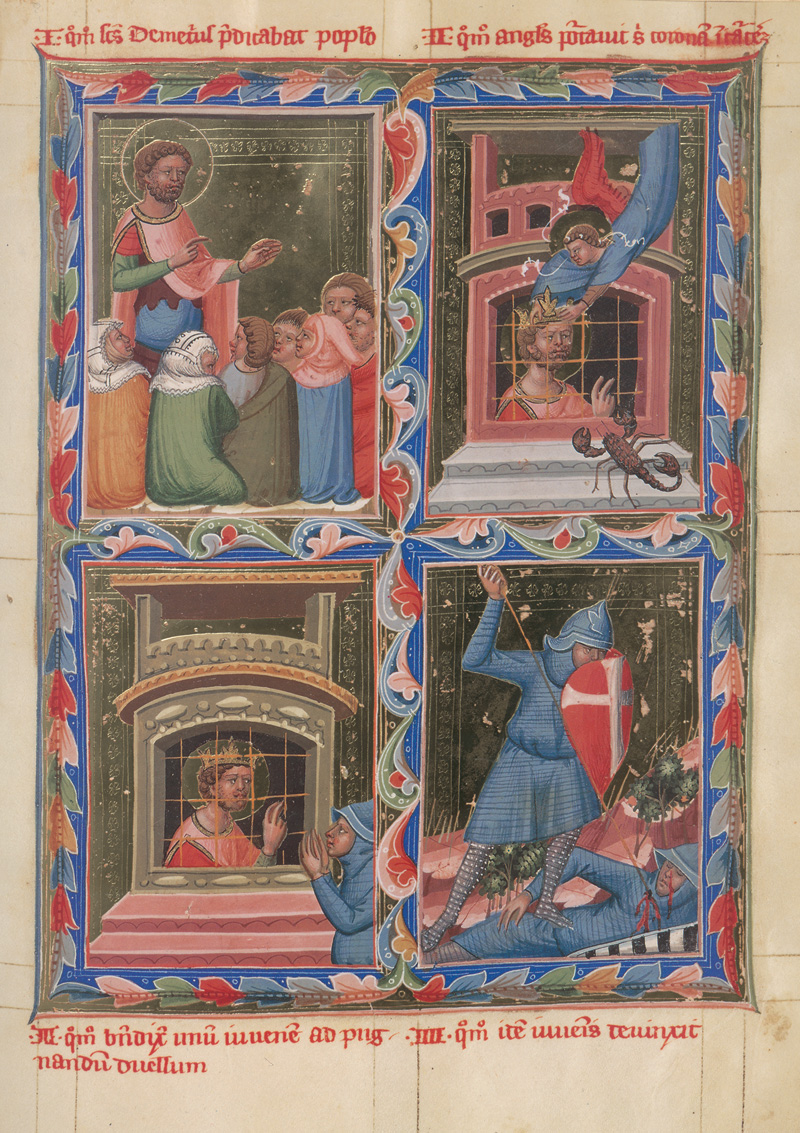 ·I· qm̄ scs̄ Demetri᷒ p̄dicabat poplo
·II· qm̄ angl̄s portauit s̄ coronā
·III· qm̄ bn̄dix̄ unū iuuenē ad pug-
nandū duellum
·IIII· qm̄ idē iuuenis deuinxit